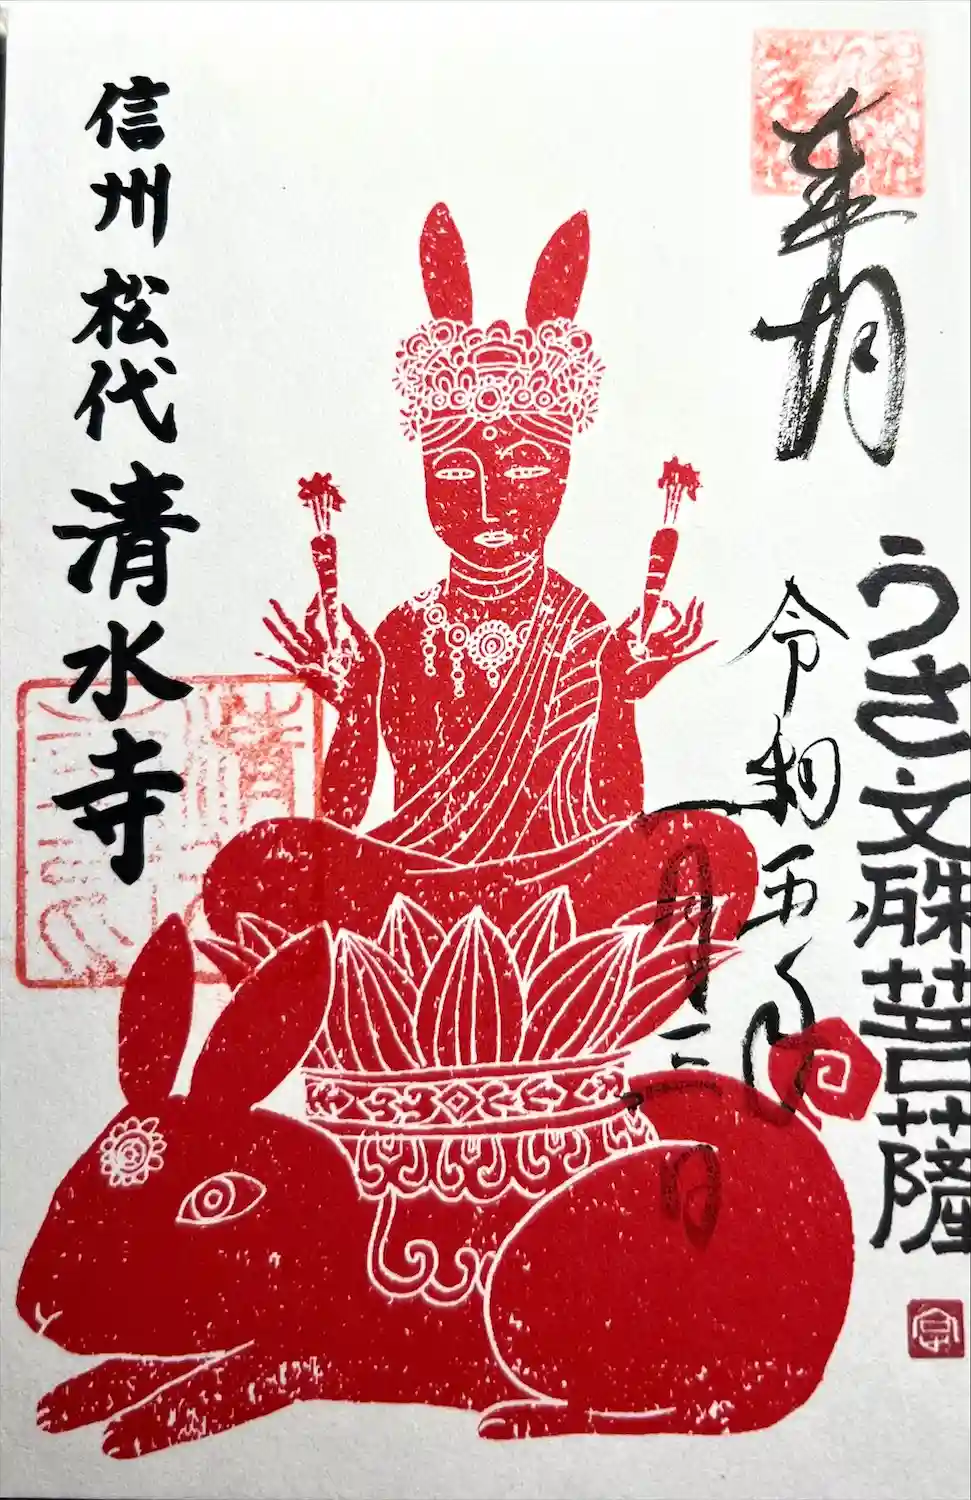 奉拝
うさ文殊菩薩
令和五年
月二日
信州 松代 清水寺